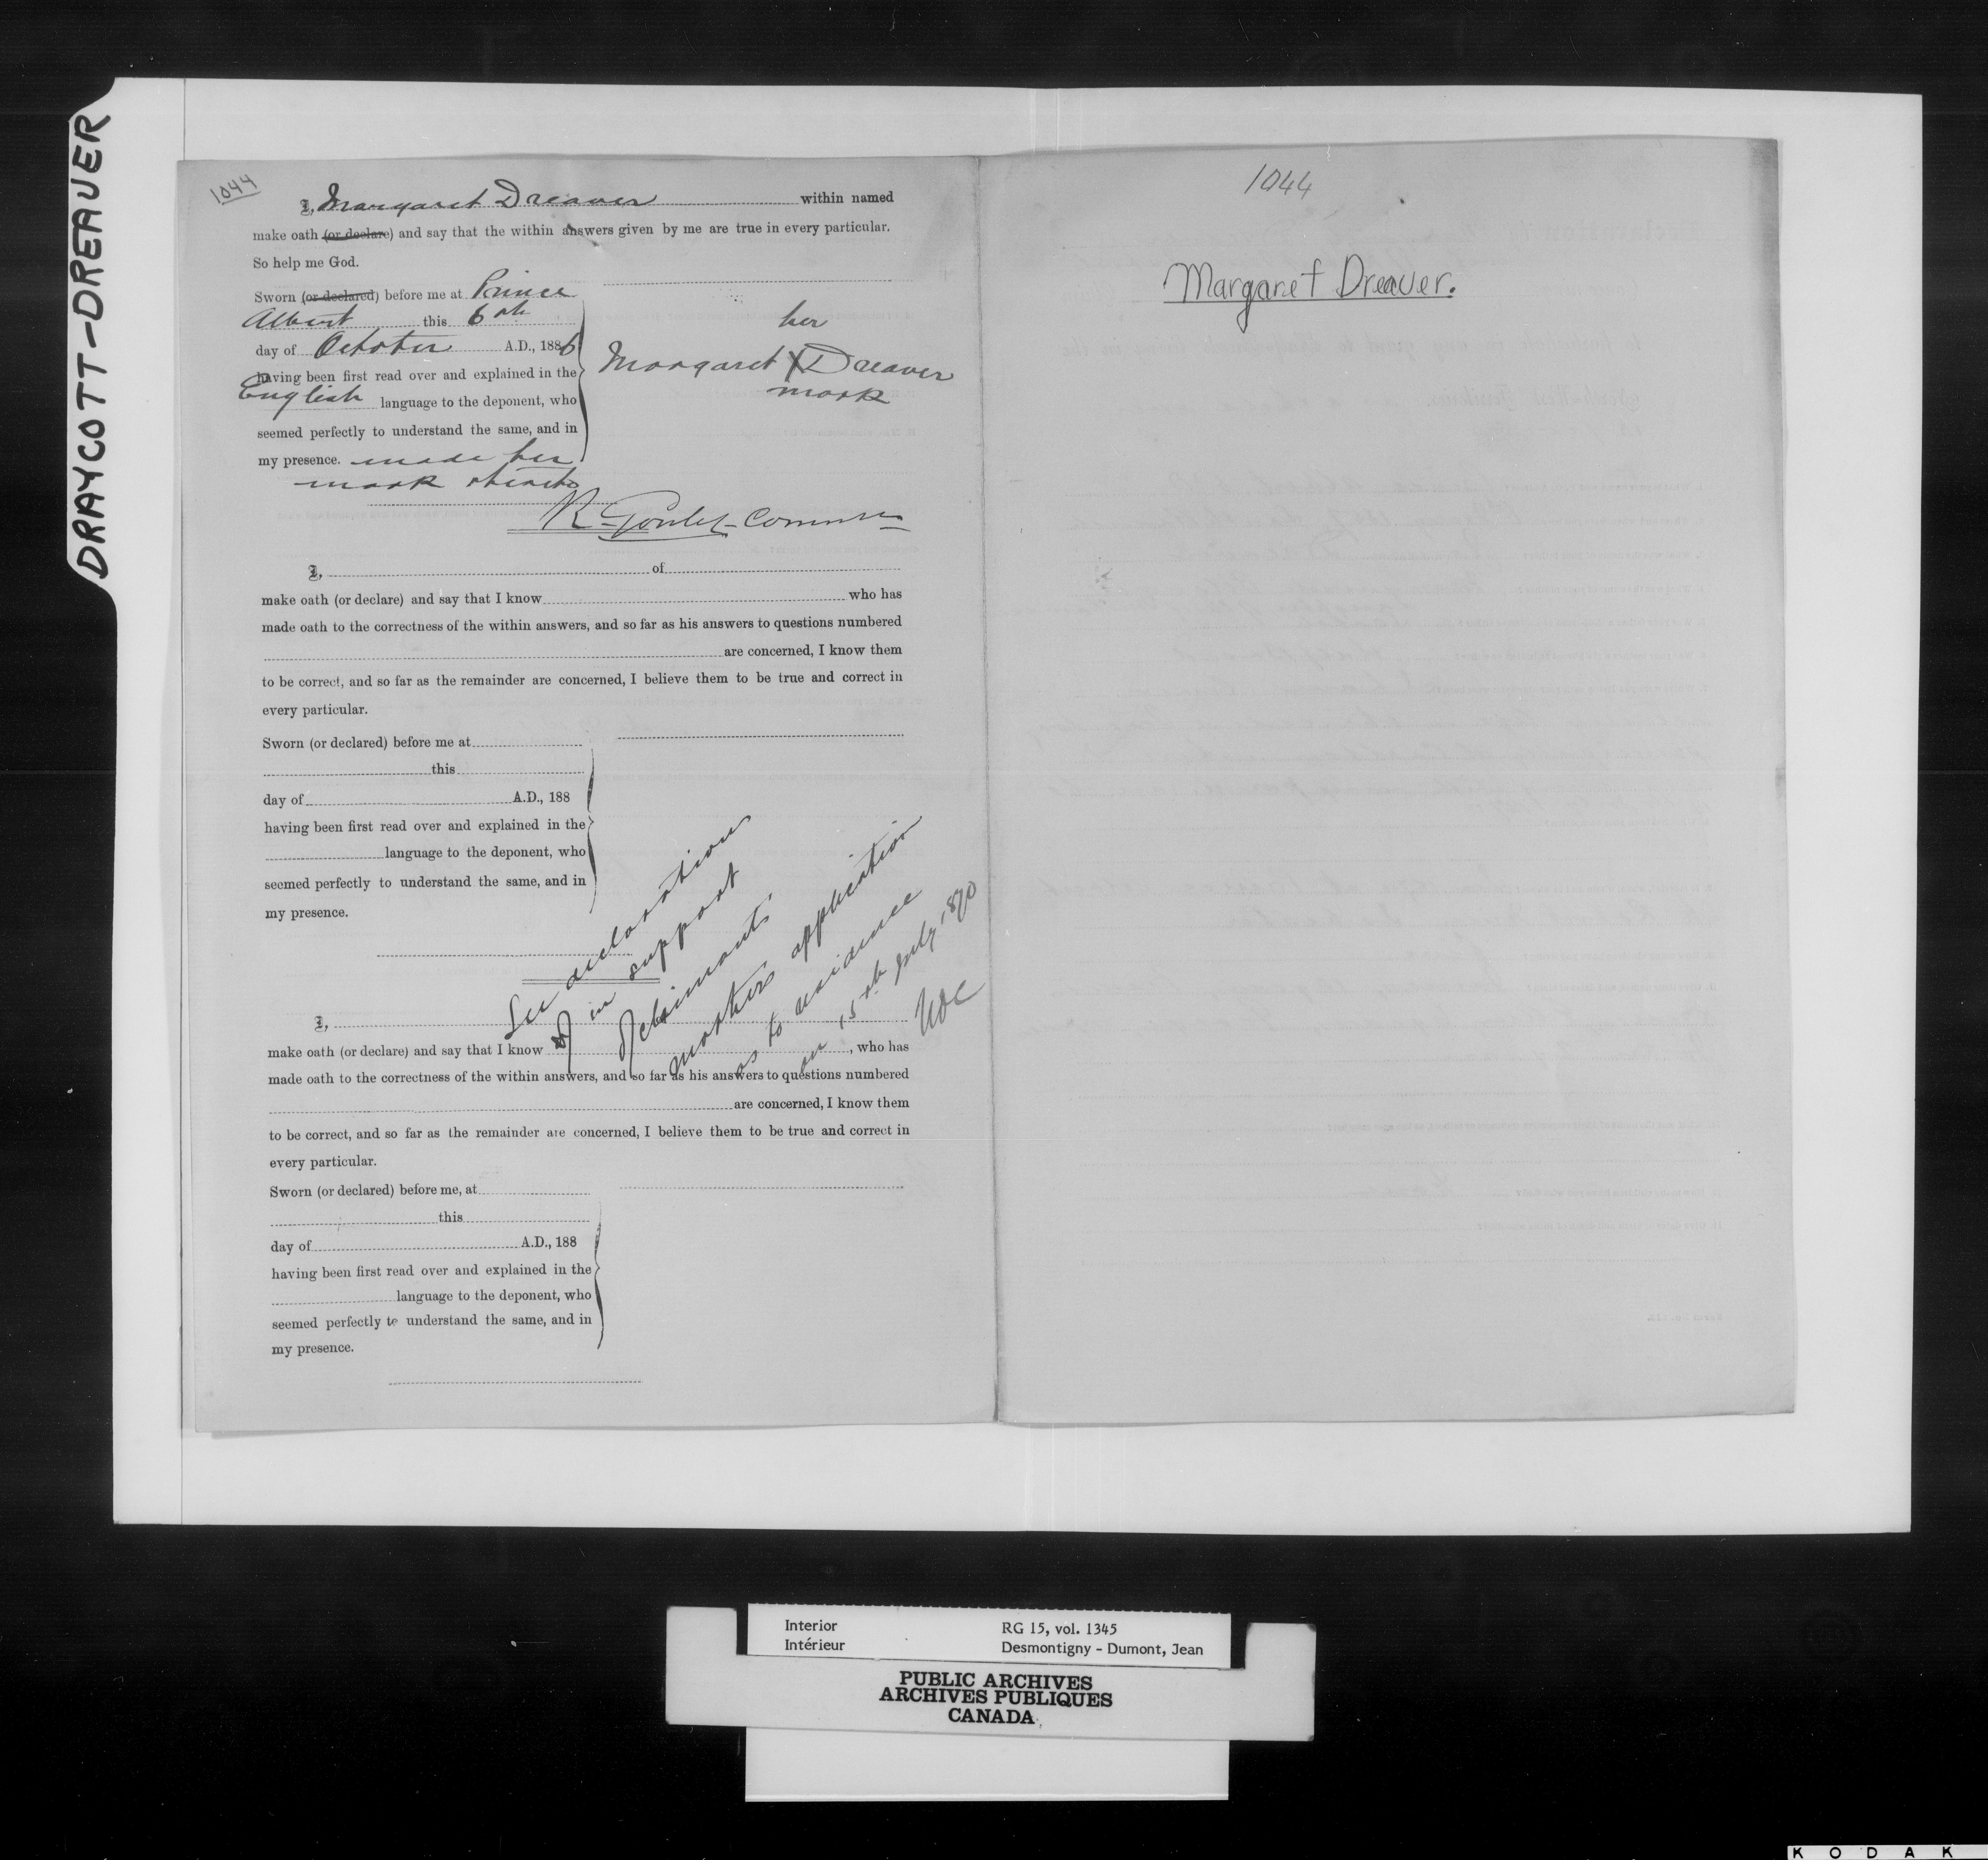 DRAYCOTT-DREAVER
1044
I, Margaret Dreaver within named
make oath (or declare) and say that the within answers given by me are true in every particular.
So help me God.
Sworn (or declared) before me at Prince
Albert this 6th
day of October A.D., 1886
having been first read over and explained in the
English language to the deponent, who
seemed perfectly to understand the same, and in
my presence. made her
mark thereto
her
Margaret X Dreaver
mark
R. Goulet Commr
I, of
make oath (or declare) and say that I know who has
made oath to the correctness of the within answers, and so far as his answers to questions numbered
are concerned, I know them
to be correct, and so far as the remainder are concerned, I believe them to be true and correct in
every particular.
Sworn (or declared) before me at
this
day of A.D., 188
having been first read over and explained in the
language to the deponent, who
seemed perfectly to understand the same, and in
my presence.
See declaration
in support
of claimants'
mothers application
as to residence
on 15th July 1870
I,
make oath (or declare) and say that I know , who has
made oath to the correctness of the within answers, and so far as his answers to questions numbered
are concerned, I know them
to be correct, and so far as the remainder are concerned, I believe them to be true and correct in
every particular.
Sworn (or declared) before me, at
this
day of A.D., 188
having been first read over and explained in the
language to the deponent, who
seemed perfectly to understand the same, and in
my presence.
1044
Margaret Dreaver.
Interior RG 15, vol. 1345
Intérieur Desmontigny - Dumont, Jean
PUBLIC ARCHIVES
ARCHIVES PUBLIQUES
CANADA
KODAK